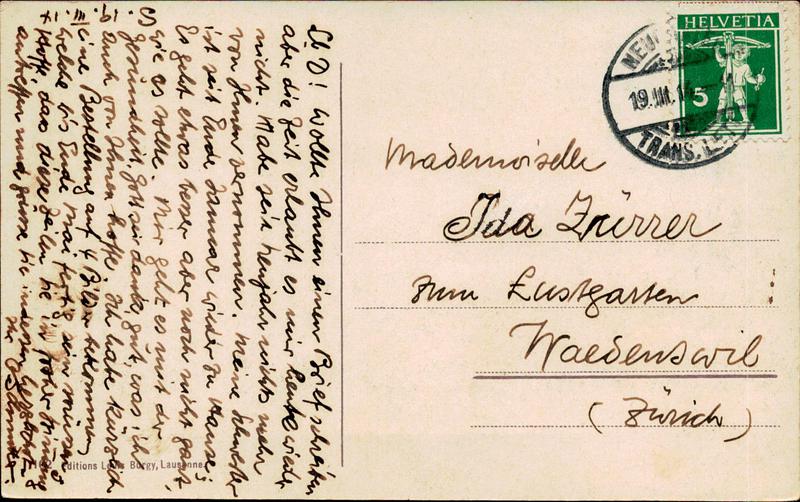 HELVETIA
5
19.III.1
TRANS. LET
Mademoiselle
Ida Zürrer
zum Lustgarten
Waedenswil
(Zürich)
19. III. 14
Lb. D! Wollte Ihnen einen Brief schreiben
aber die Zeit erlaubt es mir heute wieder
nicht. Habe seit Neujahr nichts mehr
von Ihnen vernommen. Meine Schwester
ist seit Ende Januar wieder zu Hause,
Es geht etwas besser aber noch nicht ganz
wie es sollte. Mir geht es mit der
Gesundheit, Gott sei dank, gut, was ich
auch von Ihnen hoffe. Ich habe kürzlich
eine Bestellung auf 4 Bilder bekommen
welche bis Ende Mai fertig sein müssen
Hoffe, dass diese Zeilen Sie in froher Stimmung
antreffen und grüsse Sie indessen herzlichst
Ihr
Editions Louis Burgy, Lausanne.